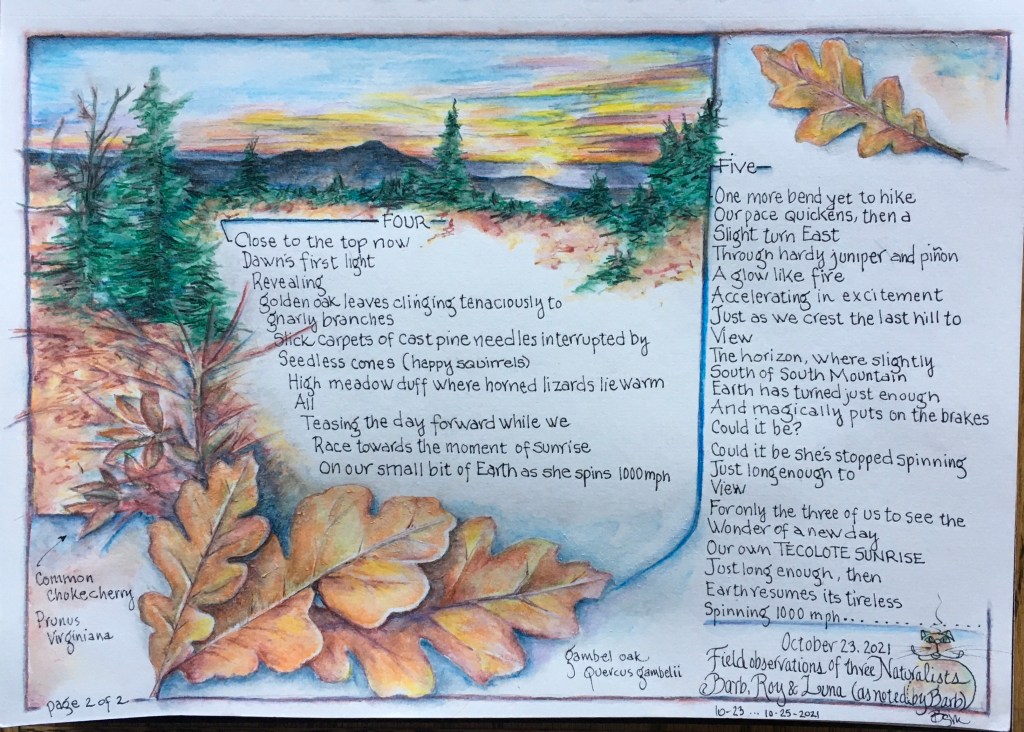 FOUR
Close to the top now
Dawn's first light
Revealing
golden oak leaves clinging tenaciously to
gnarly branches
Slick carpets of cast pine needles interrupted by
Seedless cones (happy squirrels)
High meadow duff where horned lizards lie warm
All
Teasing the day forward while we
Race towards the moment of sunrise
On our small bit of Earth as she spins 1000 mph
Common
Chokecherry
Prunus
Virginiana
gambel oak
Quercus gambelii
page 2 of 2
Five
One more bend yet to hike
Our pace quickens, then a
Slight turn East
Through hardy juniper and piñon
A glow like fire
Accelerating in excitement
Just as we crest the last hill to
View
The horizon, where slightly
South of South Mountain
Earth has turned just enough
And magically puts on the brakes
Could it be?
Could it be she's stopped spinning
Just long enough to
View
For only the three of us to see the
Wonder of a new day
Our own TECOLOTE SUNRISE
Just long enough, then
Earth resumes its tireless
Spinning 1000 mph..............
October 23. 2021
Field observations of three Naturalists
Barb, Roy & Luna (as noted by Barb)
10-23 ... 10-25-2021